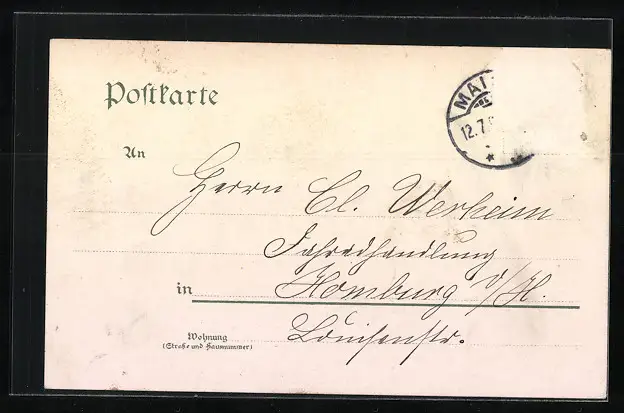 Postkarte
MAI
12.7
An
Herrn Cl. Werheim
Fahrradhandlung
in Homburg v/H.
Wohnung
(Straße und Hausnummer)
Louisenstr.